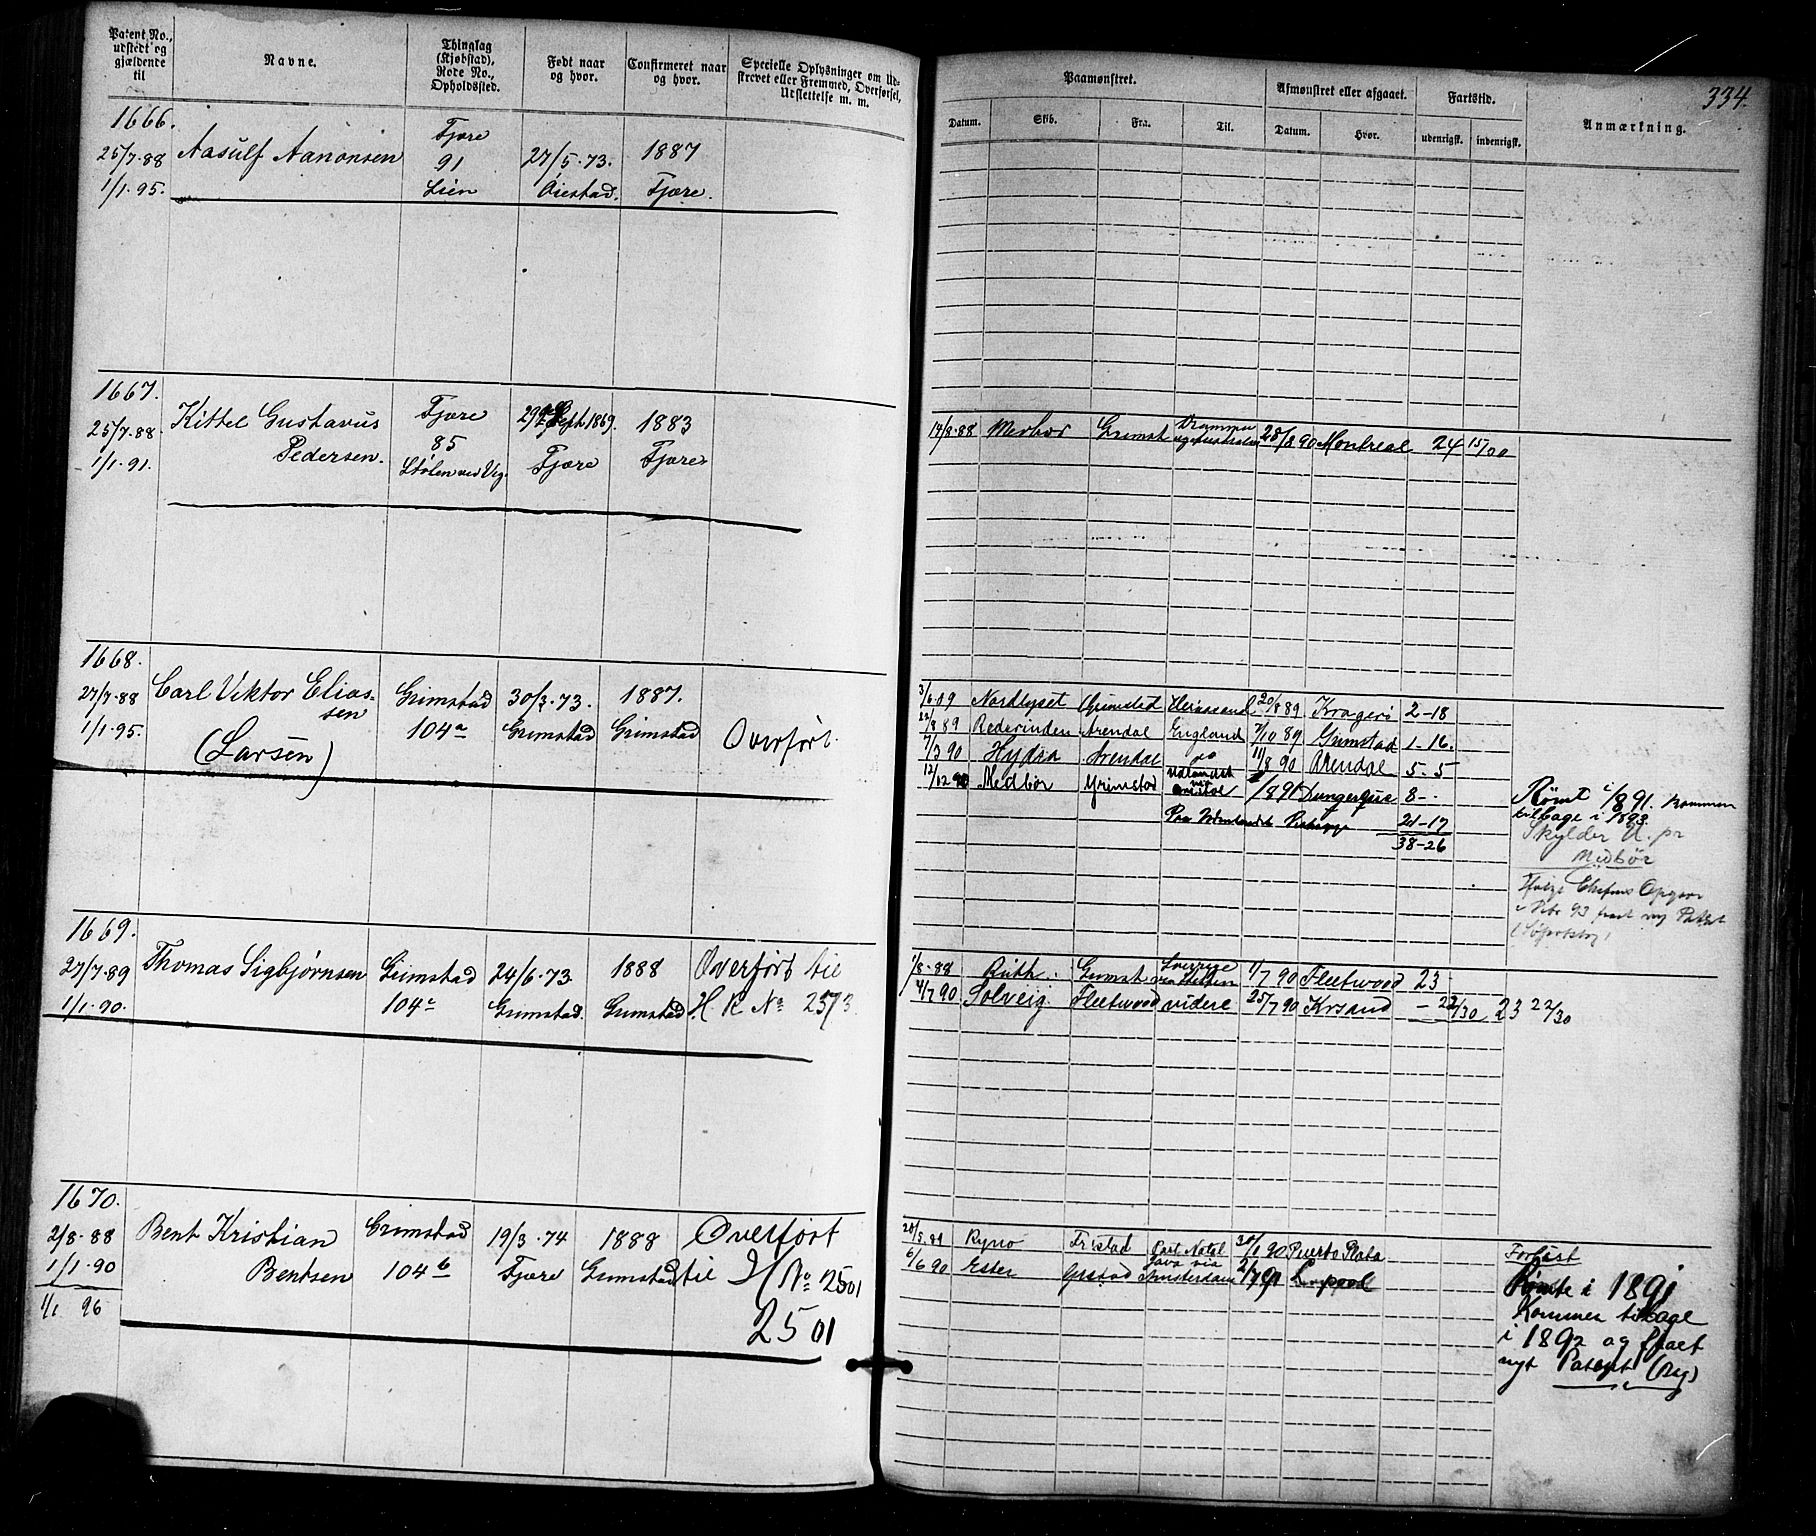 Patent No., udstedt og gjældende til
Navne.
Thinglag (Kjøbstad), Rode No., Opholdssted.
Født naar og hvor.
Confirmeret naar og hvor.
Specielle Oplysninger om Udskrevet eller Fremmed, Overførsel, Udslettelse m. m.
1666.
25/7.88 Aasulf Aanonsen Fjære 91 27/5.73. 1887
1/1.95. Lien Öiestad. Fjære.
1667.
25/7.88. Kittel Gustavus Fjære 1869. 1883
Pedersen. 85
1/1.91. Stölen ved Vig. Fjære Fjære
1668.
27/7.88 Carl Viktor Elias- Grimstad 30/3.73. 1887.
sen
1/1.95. (Larsen) 104a Grimstad Grimstad Overfört.
1669.
27/7.89 Thomas Sigbjørnsen Grimstad 24/6.73. 1888 Overført til
1/1.90. 104c Grimstad. Grimstad. H R No 2573.
1670.
2/8.88 Bent Kristian Grimstad 19/3.74 1888 Overført
1/1.90 Bentsen 104b Fjære Grimstad til H No 2501
1/1 96 2501
334.
Paamønstret.
Afmønstret eller afgaaet.
Fartstid.
Anmærkning.
Datum. Skib. Fra. Til. Datum. Hvor. udenrigsk. indenrigsk.
Medbør Grimst. Drammen 28/8 90 Montreal 24 15/30
Nordlyset Grimstad 20/8 89 Kragerö 2-18
Rederinden Arendal England 7/10 89 Grimstad 1-16.
7/3 90 Hydra Arendal do 11/8 90 Arendal 5-5
12/12 90 Medbör Grimstad Udlandet 8-
21-17
38-26
Rømt 1/8 91. kommen
tilbage i 1893.
Skylder U. pr
Medbör
1/8.88 Ruth. Grimst. Sverige 1/7 90 Fleetwood 23
4/7 90 Solveig. Fleetwood videre 25/7 90 Krsand - 22/30 23 22/30
Fristad Port Natal 30/1 90 Puerto Plata Forlist
6/6 90 Ester Java via
Amsterdam L.pool Rømte i 1891
Kommen tilbage
i 1892 og faaet
nyt Patent (Ny)